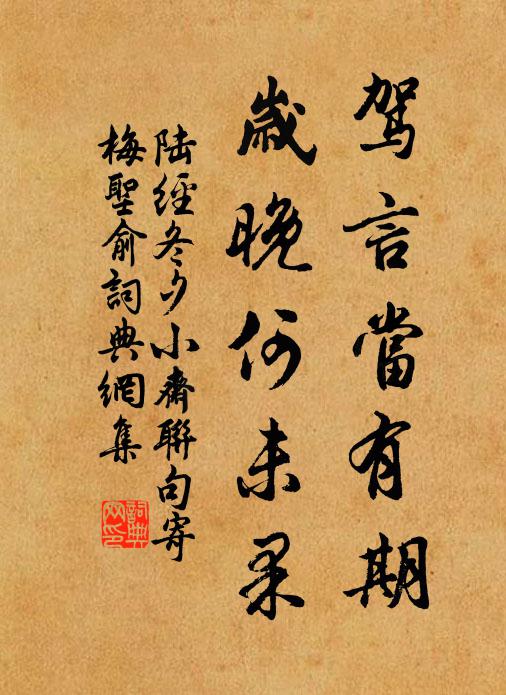 駕言當有期
歲晚何未果
陸經冬夕小齋聯句寄
梅聖俞詞典網集
詞典
网印